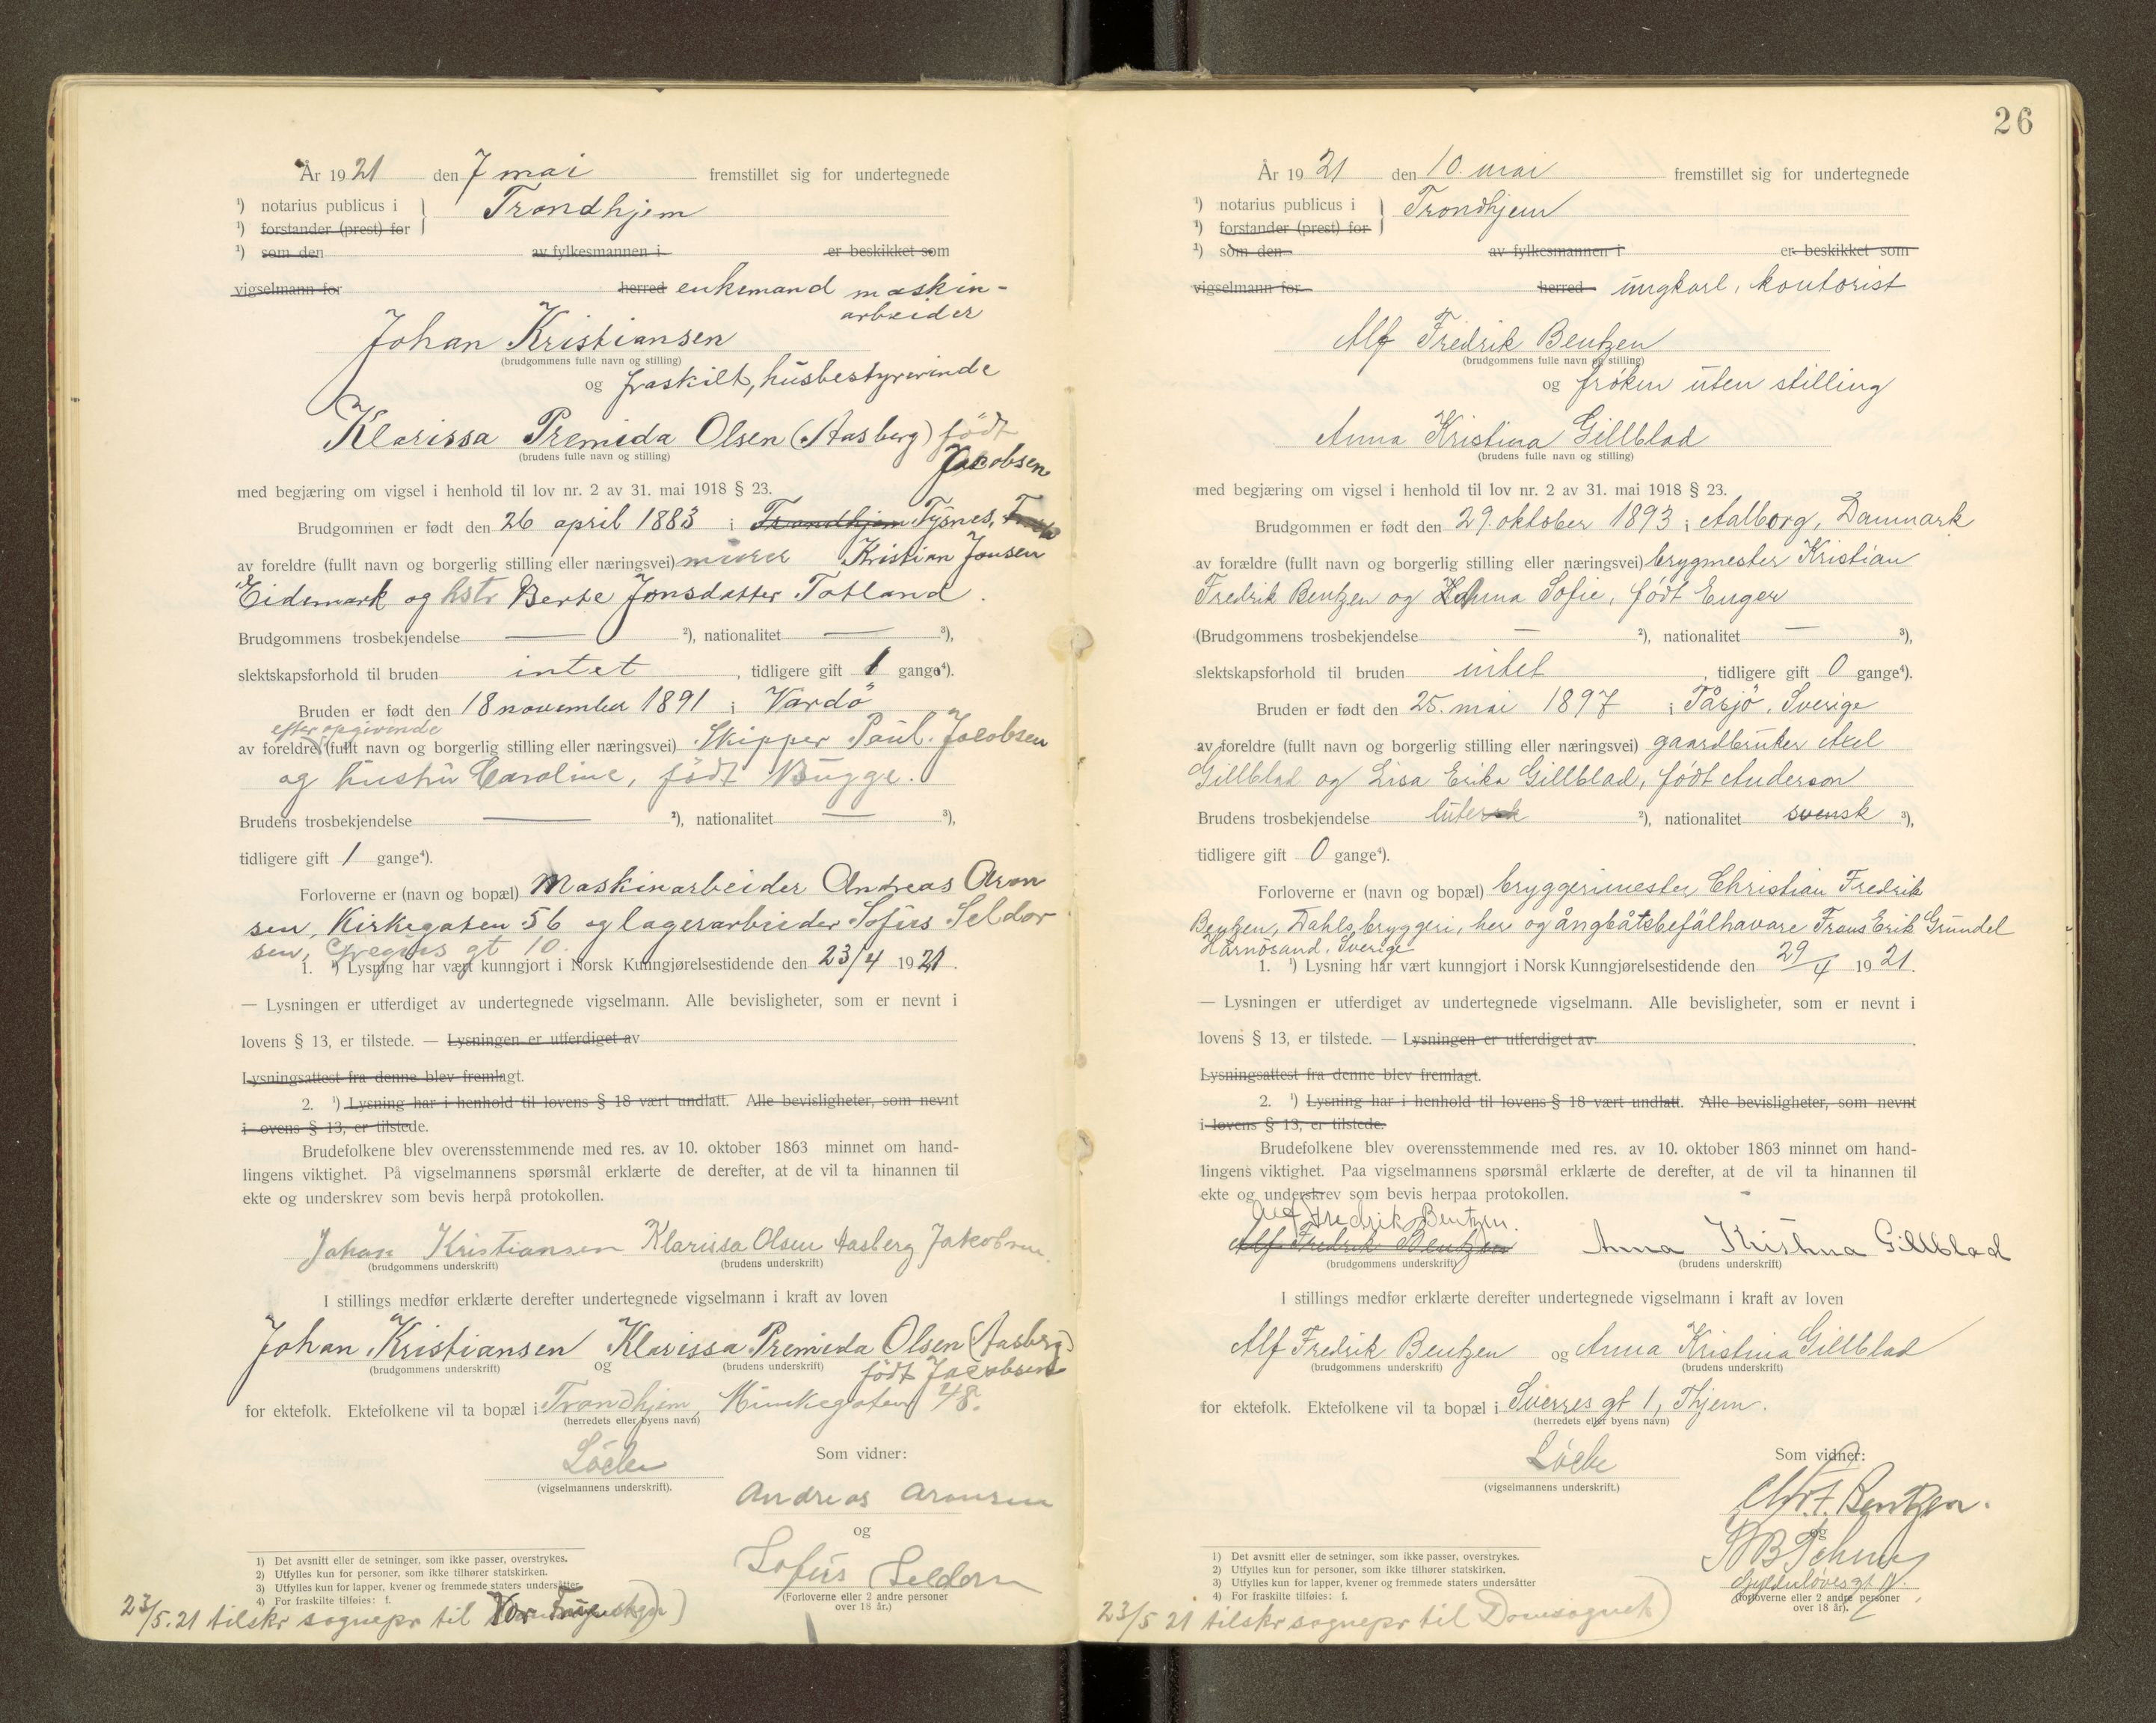 År 1921 den 7 mai fremstillet sig for undertegnede
¹) notarius publicus i } Trondhjem
¹) forstander (prest) for
¹) som den av fylkesmannen i er beskikket som
vigselmann for herred enkemand maskin-
arbeider
Johan Kristiansen
(brudgommens fulle navn og stilling)
og fraskilt, husbestyrerinde
Klarissa Premida Olsen (Aasberg) født
Jacobsen
(brudens fulle navn og stilling)
med begjæring om vigsel i henhold til lov nr. 2 av 31. mai 1918 § 23.
Brudgommen er født den 26 april 1883 i Trondhjem Tysnes,
av foreldre (fullt navn og borgerlig stilling eller næringsvei) murer Kristian Jonsen
Eidemark og hstr Berte Jonsdatter Totland.
Brudgommens trosbekjendelse — ²), nationalitet — ³),
slektskapsforhold til bruden intet, tidligere gift 1 gange⁴).
Bruden er født den 18 november 1891 i Vardö
efter opgivende
av foreldre (fullt navn og borgerlig stilling eller næringsvei) Skipper Paul Jacobsen
og hustru Caroline, født Bugge.
Brudens trosbekjendelse — ²), nationalitet — ³),
tidligere gift 1 gange⁴).
Forloverne er (navn og bopæl) Maskinarbeider Andreas Aron
sen, Kirkegaten 56 og lagerarbeider Sofus Seldor
sen, Gregus gt 10.
1. ¹) Lysning har vært kunngjort i Norsk Kunngjørelsestidende den 23/4 1921.
— Lysningen er utferdiget av undertegnede vigselmann. Alle bevisligheter, som er nevnt i
lovens § 13, er tilstede. — Lysningen er utferdiget av
Lysningsattest fra denne blev fremlagt.
2. ¹) Lysning har i henhold til lovens § 18 vært undlatt. Alle bevisligheter, som nevnt
i ovens § 13, er tilstede.
Brudefolkene blev overensstemmende med res. av 10. oktober 1863 minnet om hand-
lingens viktighet. På vigselmannens spørsmål erklærte de derefter, at de vil ta hinannen til
ekte og underskrev som bevis herpå protokollen.
Johan Kristiansen Klarissa Olsen Aasberg Jakobsen
(brudgommens underskrift) (brudens underskrift)
I stillings medfør erklærte derefter undertegnede vigselmann i kraft av loven
Johan Kristiansen Klarissa Premida Olsen (Aasberg)
(brudgommens underskrift) og (brudens underskrift) født Jacobsen
for ektefolk. Ektefolkene vil ta bopæl i Trondhjem, Munkegaten 48.
(herredets eller byens navn)
Löcke
(vigselmannens underskrift).
Som vidner:
Andreas Aronsen
og
Sofus Seldorsen
(Forloverne eller 2 andre personer
over 18 år.)
1) Det avsnitt eller de setninger, som ikke passer, overstrykes.
2) Utfylles kun for personer, som ikke tilhører statskirken.
3) Utfylles kun for lapper, kvener og fremmede staters undersåtter
4) For fraskilte tilføies: f.
23/5.21 tilskr sognepr til Vor Frue
26
År 1921 den 10. mai fremstillet sig for undertegnede
¹) notarius publicus i } Trondhjem
¹) forstander (prest) for
¹) som den av fylkesmannen i er beskikket som
vigselmann for herred ungkarl, kontorist
Alf Fredrik Bentzen
(brudgommens fulle navn og stilling)
og frøken uten stilling
Anna Kristina Gillblad
(brudens fulle navn og stilling)
med begjæring om vigsel i henhold til lov nr. 2 av 31. mai 1918 § 23.
Brudgommen er født den 29. oktober 1893 i Aalborg, Danmark
av forældre (fullt navn og borgerlig stilling eller næringsvei) brygmester Kristian
Fredrik Bentzen og Sofie, født Enger
(Brudgommens trosbekjendelse — ²), nationalitet — ³),
slektskapsforhold til bruden intet, tidligere gift 0 gange⁴).
Bruden er født den 25. mai 1897 i Tåsjö, Sverige
av foreldre (fullt navn og borgerlig stilling eller næringsvei) gaardbruker Axel
Gillblad og Lisa Erika Gillblad, født Anderson
Brudens trosbekjendelse lutersk ²), nationalitet svensk ³),
tidligere gift 0 gange⁴).
Forloverne er (navn og bopæl) bryggerimester Christian Fredrik
Bentzen, Dahls bryggeri, her og ångbåtsbefälhavare Frans Erik Grundel
Härnösand. Sverige
1. ¹) Lysning har vært kunngjort i Norsk Kunngjørelsestidende den 29/4 1921.
— Lysningen er utferdiget av undertegnede vigselmann. Alle bevisligheter, som er nevnt i
lovens § 13, er tilstede. — Lysningen er utferdiget av .
Lysningsattest fra denne blev fremlagt.
2. ¹) Lysning har i henhold til lovens § 18 vært undlatt. Alle bevisligheter, som nevnt
i lovens § 13, er tilstede.
Brudefolkene blev overensstemmende med res. av 10. oktober 1863 minnet om hand-
lingens viktighet. Paa vigselmannens spørsmål erklærte de derefter, at de vil ta hinannen til
ekte og underskrev som bevis herpaa protokollen.
Alf Fredrik Bentzen.
Alf Fredrik Bentzen Anna Kristina Gillblad
(brudgommens underskrift) (brudens underskrift)
I stillings medfør erklærte derefter undertegnede vigselmann i kraft av loven
Alf Fredrik Bentzen og Anna Kristina Gillblad
(brudgommens underskrift) (brudens underskrift)
for ektefolk. Ektefolkene vil ta bopæl i Sverres gt 1, Thjem.
(herredets eller byens navn)
Löcke
(vigselmannens underskrift.)
Som vidner:
Chr. F. Bentzen.
og
Gyldenløvesgt
(forloverne eller 2 andre personer
over 18 år).
1) Det avsnitt eller de setninger, som ikke passer, overstrykes.
2) Utfylles kun for personer, som ikke tilhører statskirken.
3) Utfylles kun for lapper, kvener og fremmede staters undersåtter
4) For fraskilte tilføies: f.
23/5 21 tilskr sognepr til Domsognet)